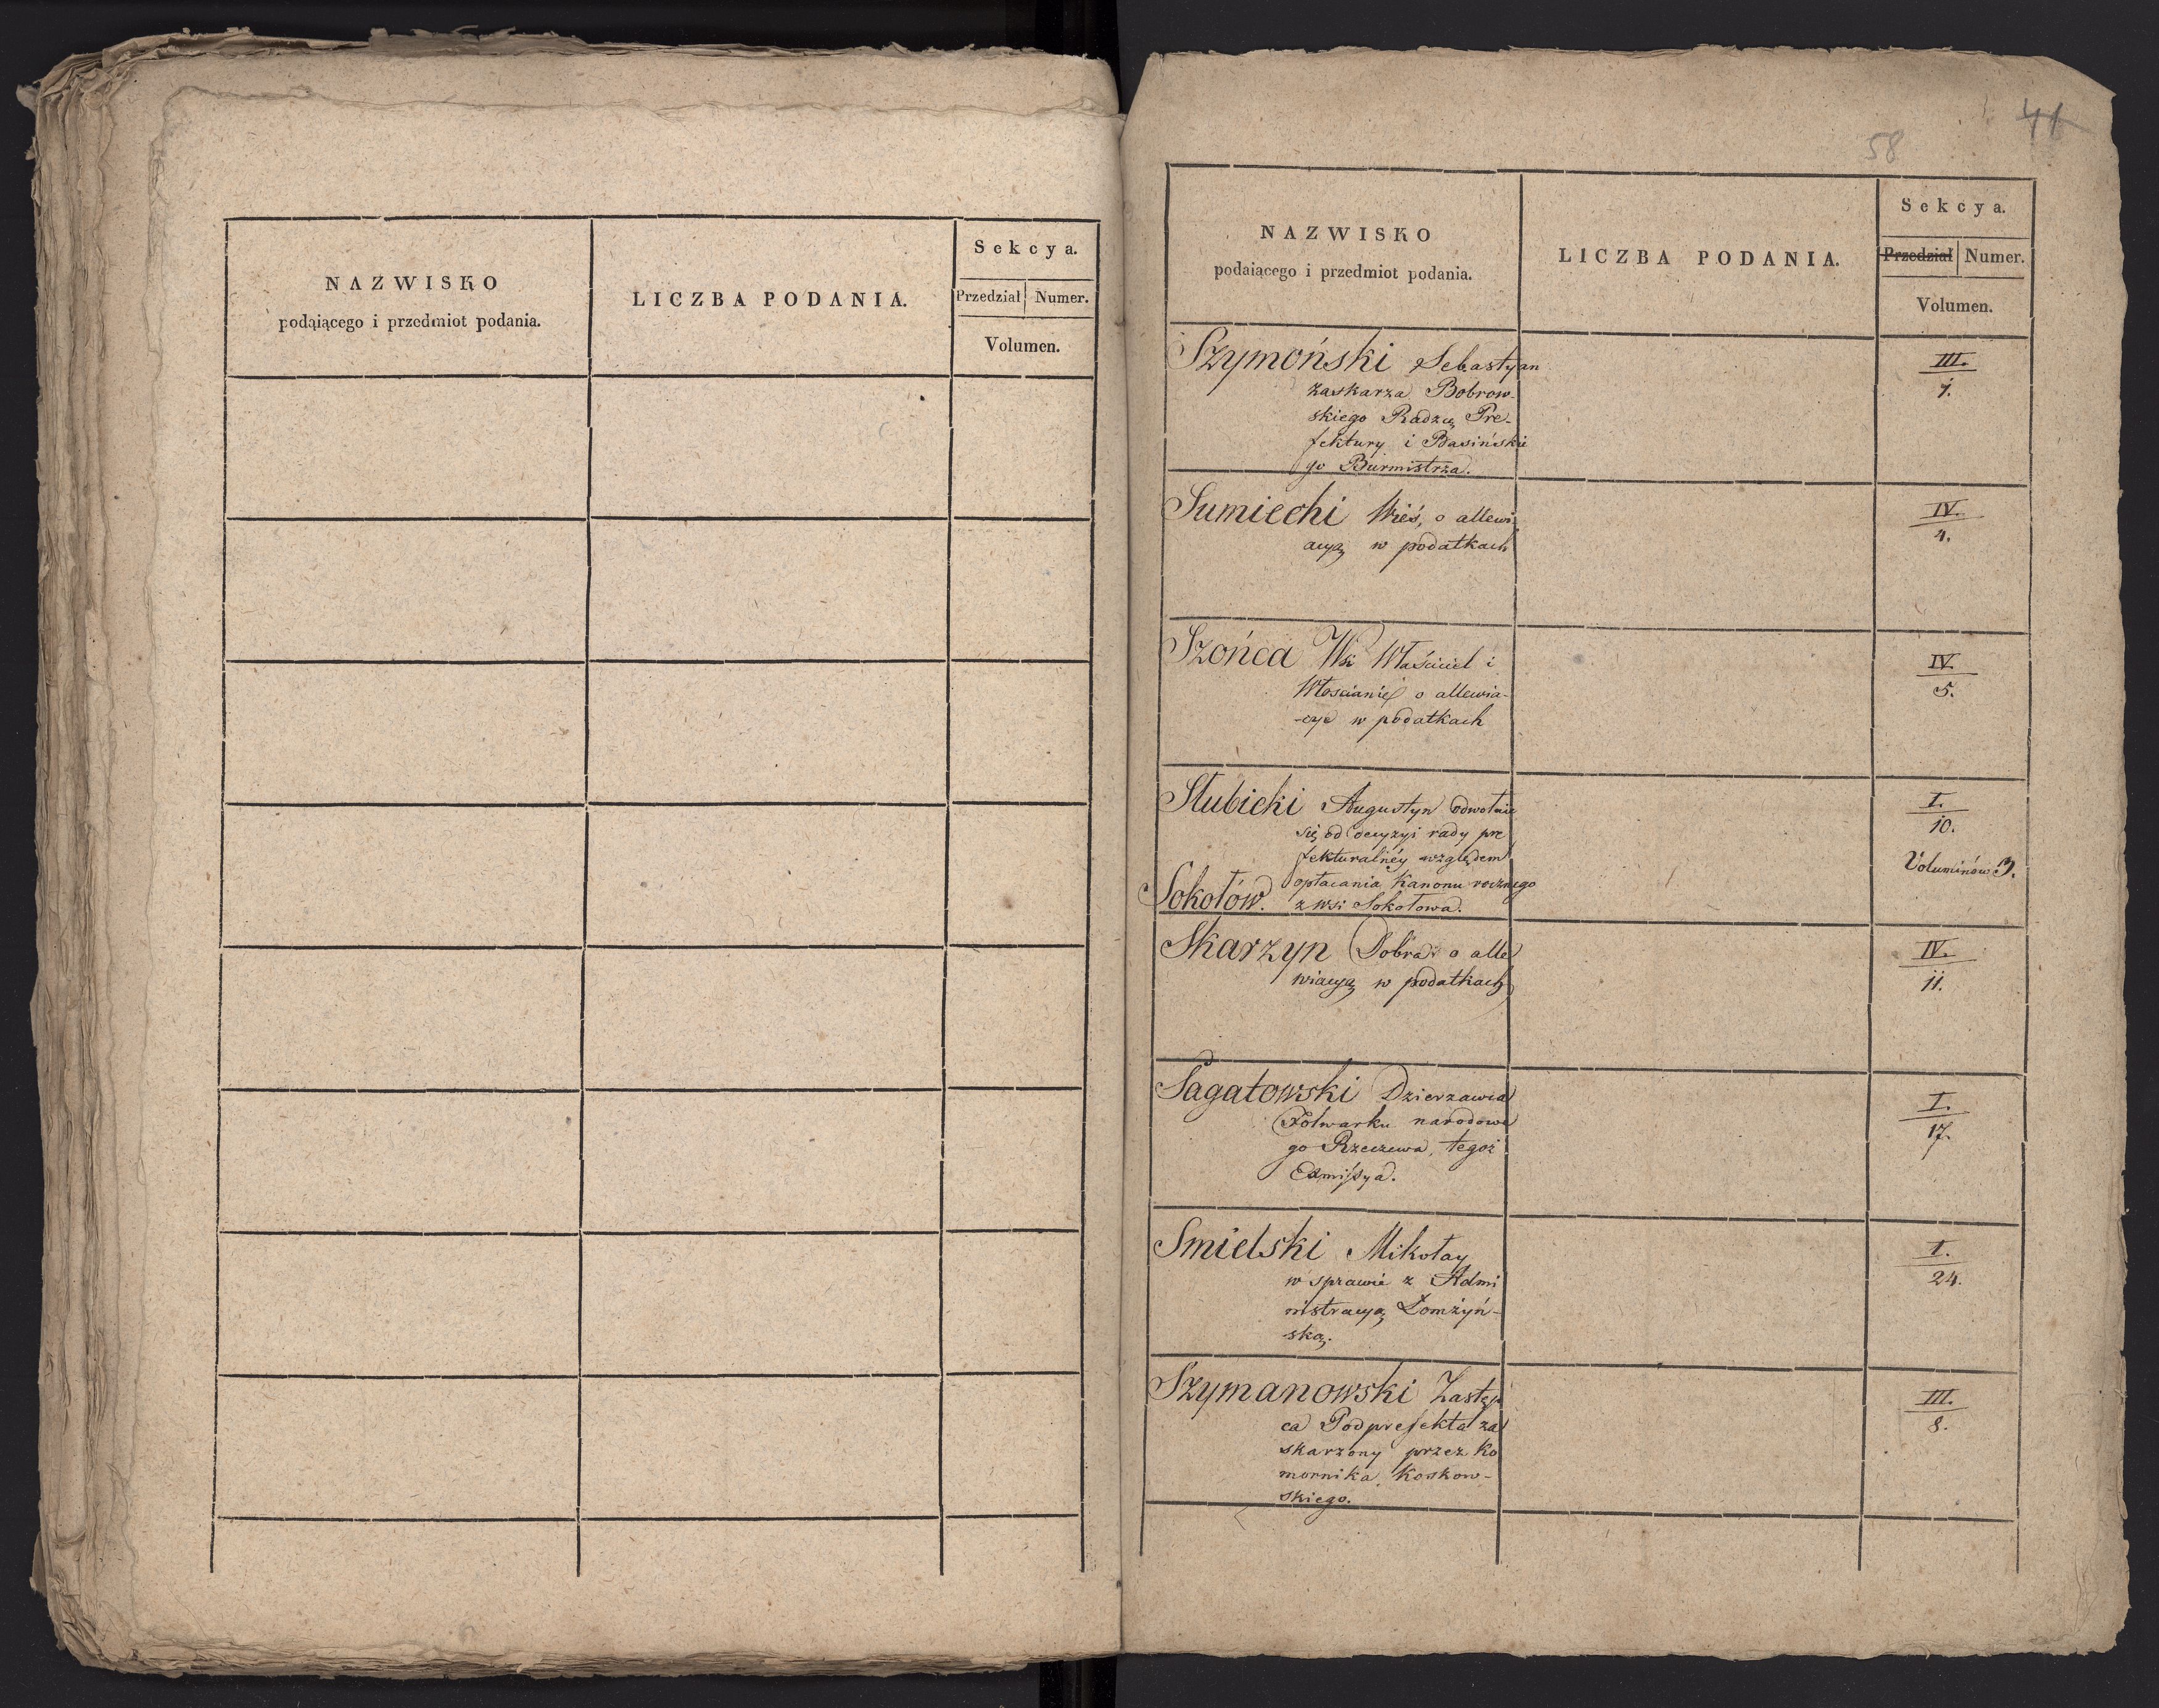 NAZWISKO
podaiącego i przedmiot podania.
LICZBA PODANIA.
Sekcya.
Przedział Numer.
Volumen.
41
58
NAZWISKO
podaiącego i przedmiot podania.
LICZBA PODANIA.
Sekcya.
Przedział Numer.
Volumen.
Szymoński Sebastyan
zaskarza Bobrow-
skiego Radzcę Pre-
fektury i Basińskie
go Burmistrza.
III.
1.
Sumiechi Wieś, o allewi
acyą w podatkach
IV.
4.
Szońca Wsi Właściciel i
Włoscianie o allewia-
-cye w podatkach
IV.
5.
Słubicki Augustyn odwołuie
się od decyzyi rady pre
fekturalnéy względem
opłacania Kanonu rocznego
Sokołów. z wsi Sokołowa.
I.
10.
Voluminów 3.
Skarzyn Dobra o alle
wiacyą w podatkach
IV.
11.
Sagatowski Dzierzawca
Folwarku narodowe
go Rzeczewa, tegoż
Exmissya.
I.
17.
Smielski Mikołay
w sprawie z Admi
nistracyą Łomżyń-
ską.
I.
24.
Szymanowski Zastęp
ca Podprefekta za
skarzony przez Ko
mornika Koskow-
skiego.
III.
8.